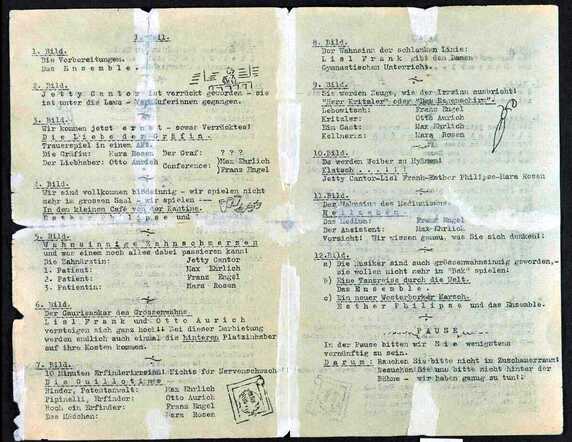 1. Bild.
Die Vorbereitungen.
Das Ensemble.
2. Bild.
Jetty Cantor ist verrückt geworden - sie
ist unter die Lava - gegangen.
3. Bild.
Wir kommen jetzt ernst - sowas Verrücktes!
Die Liebe der Gräfin.
Trauerspiel in einem Akt.
Die Gräfin: Hara Rosen Der Graf: ???
Der Liebhaber: Otto Aurich Conference: Max Ehrlich
Franz Engel
4. Bild.
Wir sind vollkommen blödsinnig - wir spielen nicht
mehr im grossen Saal - wir spielen
In dem kleinen Café von der Kantine.
Esther Philipse und
5. Bild.
Wahnsinnige Zahnschmerzen
und was einem noch alles dabei passieren kann!
Die Zahnärztin: Jetty Cantor
1. Patient: Max Ehrlich
2. Patient: Franz Engel
3. Patientin: Hara Rosen
6. Bild.
Der Gaurisankar des Grössenwahns.
Lisl Frank und Otto Aurich
versteigen sich ganz hoch! Bei dieser Darbietung
werden endlich auch einmal die hinteren Platzinhaber
auf ihre Kosten kommen.
7. Bild.
10 Minuten Nichts für Nervenschwache
Die Guillotine
Finder, Patentanwalt: Max Ehrlich
Pipinelli, Erfinder: Otto Aurich
Noch ein Erfinder: Franz Engel
Das Mädchen: Hara Rosen
8. Bild.
Der Wahnsinn der schlanken Linie:
Lisl Frank gibt den Damen
Gymnastischen Unterricht.
9. Bild.
Sie werden Zeuge, wie der Irrsinn ausbricht!
"Herr Kritzler" oder "Das Regenschirm".
Lebowitsch: Franz Engel
Kritzler: Otto Aurich
Ein Gast: Max Ehrlich
Kellnerin: Hara Rosen
10. Bild.
Da werden Weiber zu Hyänen!
Klatsch.....!!!
Jetty Cantor-Lisl Frank-Esther Philipse-Hara Rosen
11. Bild.
Der Wahnsinn des Mediumismus.
Hellsehen.
Das Medium: Franz Engel
Der Assistent: Max Ehrlich
Vorsicht! Wir wissen genau, was Sie sich denken!
12. Bild.
a) Die Musiker sind auch grössenwahnsinnig geworden,-
sie wollen nicht mehr in "Bek" spielen!
b) Eine Tanzreise durch die Welt.
Das Ensemble.
c) Ein neuer Westerborker Marsch.
Esther Philipse und das Ensemble.
PAUSE
In der Pause bitten wir Sie wenigstens
vernünftig zu sein.
Darum: Rauchen Sie bitte nicht im Zuschauerraum!
Besuchen Sie uns bitte nicht hinter der
Bühne - wir haben genug zu tun!